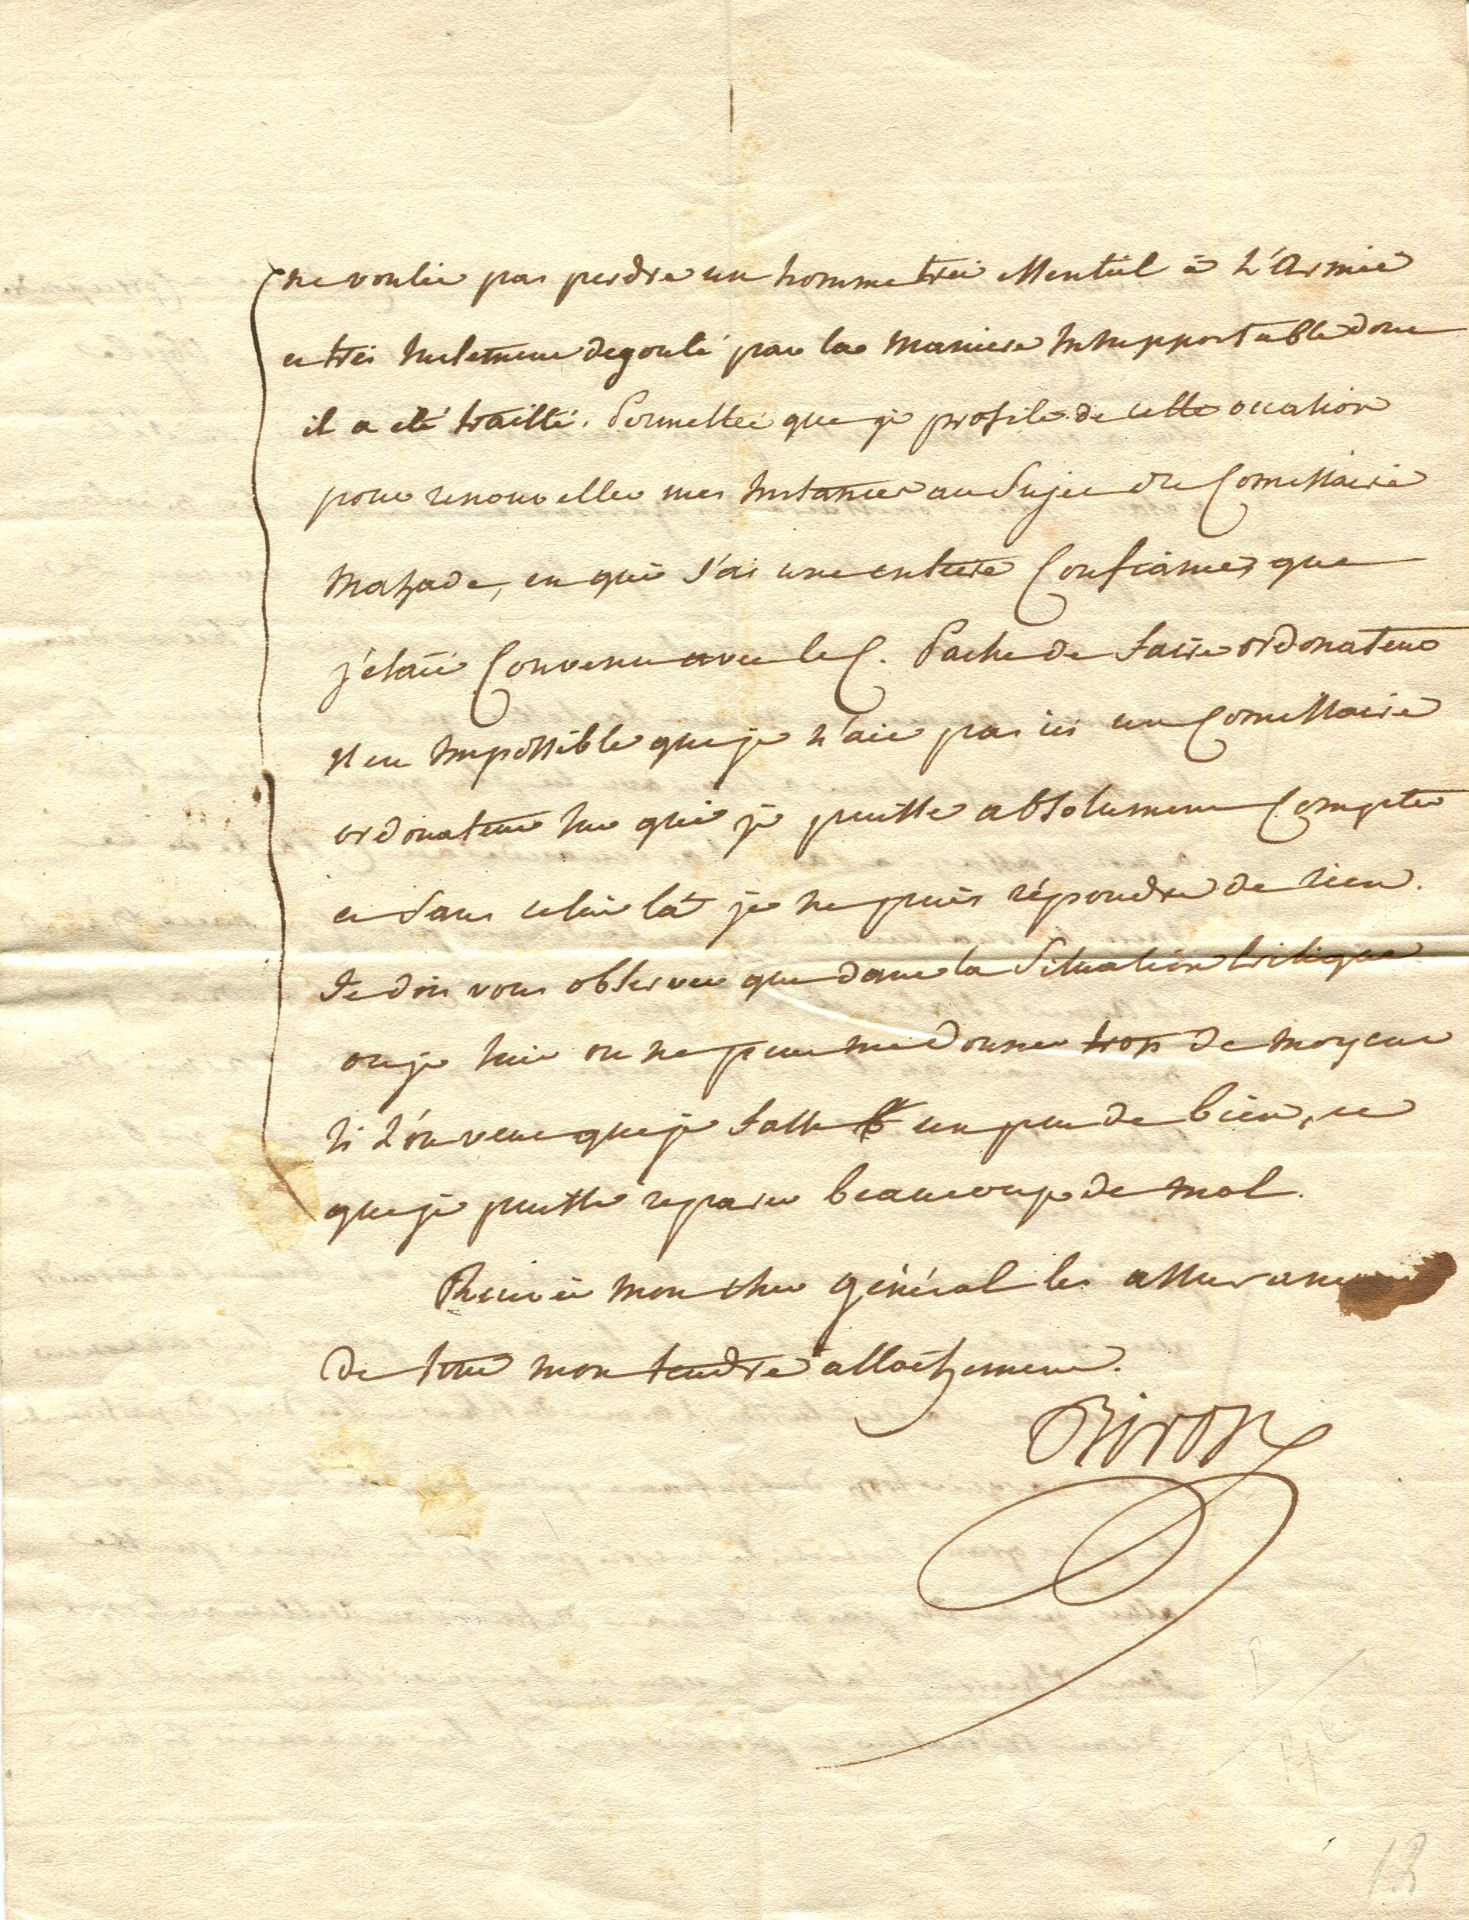 ne voulés pas perdre un homme très essentiel à l'Armée
et très Justement degouté par la maniere Insupportable dont
il a eté traitté. Permettés que je profite de cette occasion
pour renouveller mes Instances au Sujet du Comissaire
Mazade, en qui J'ai une entiere Confiance, que
j'étais Convenu avec le C. Pache de faire ordonateur
Il est Impossible que je n'aie pas ici un Comissaire
ordonateur sur qui je puisse absolument Compter
et Sans celui là je ne puis répondre de rien.
Je dois vous observer que dans la Situation critique
ou je suis on ne peut me donner trop de moyens
si l'on veut que je fasse un peu de bien, et
que je puisse reparer beaucoup de mal.
Recevés mon cher général les assurances
de tout mon tendre attachement.
Biron
18